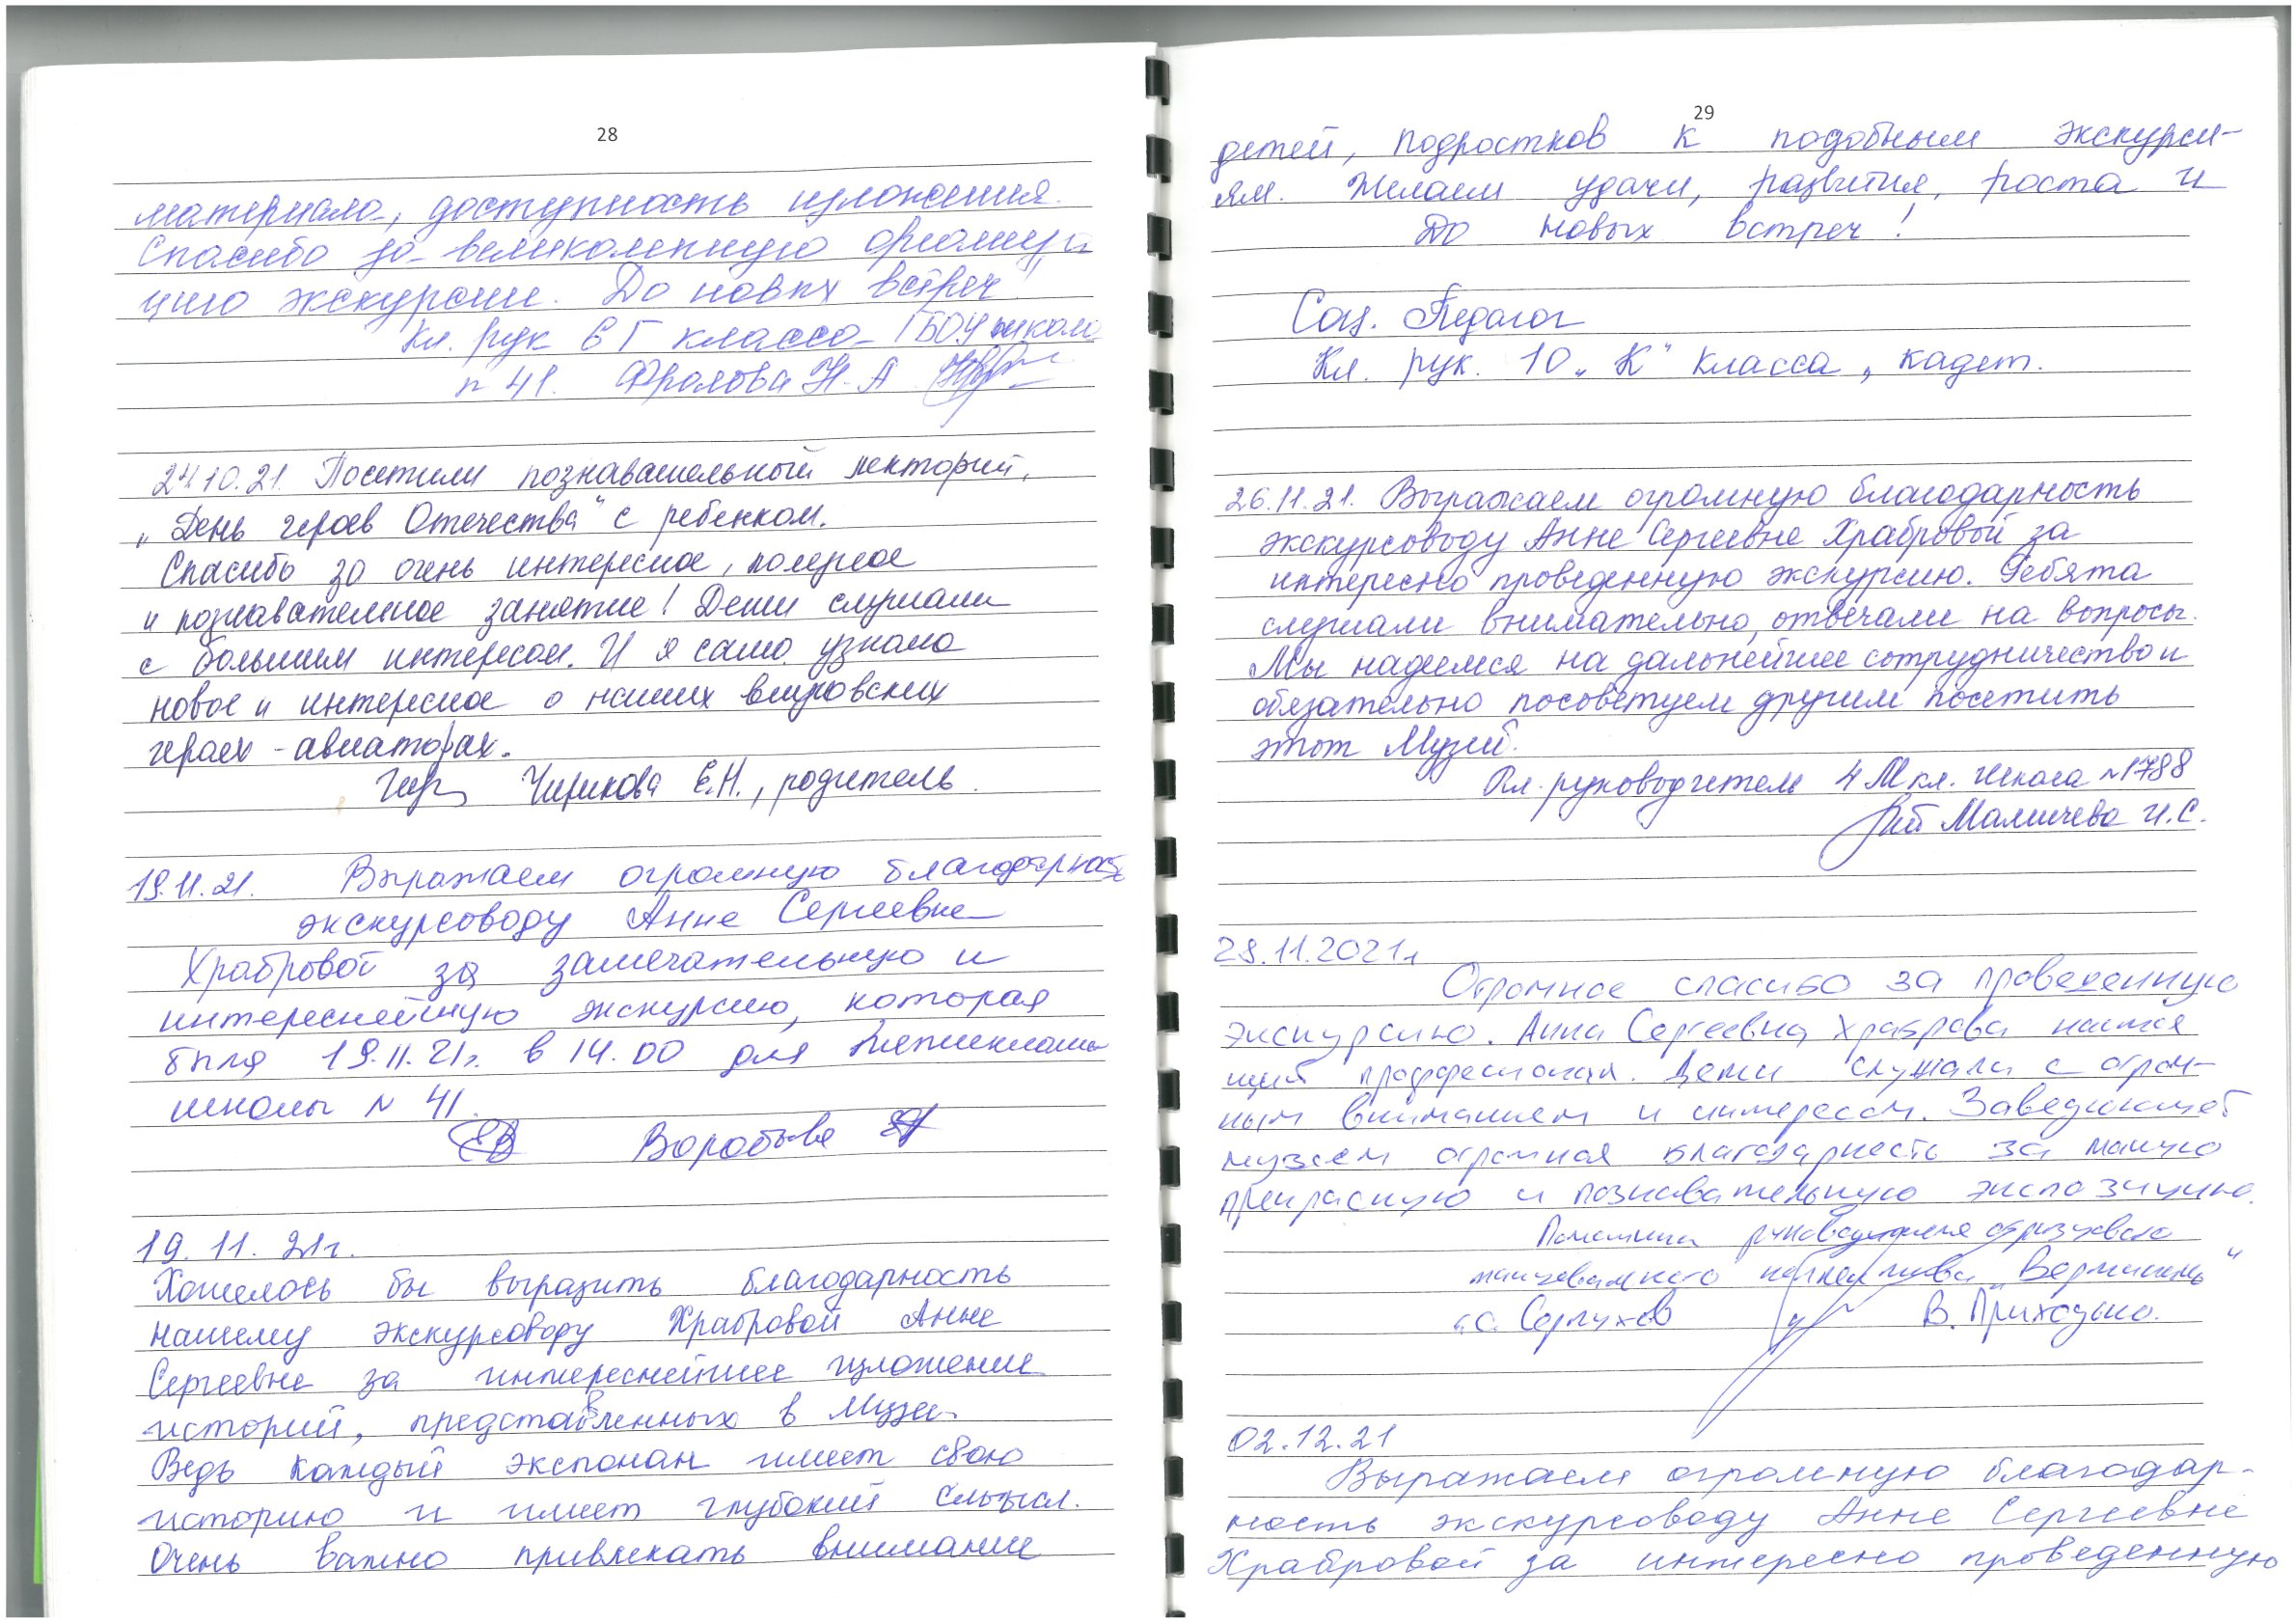 28
материала, доступность изложения.
Спасибо за великолепную организа
цию экскурсии. До новых встреч!
Кл. рук 6 Г класса ГБОУ школа
n 41. Фролова Н. А
24.10.21. Посетили познавательный лекторий,
„День героев Отечества" с ребенком.
Спасибо за очень интересное, полезное
и познавательное занятие! Дети слушали
с большим интересом. И я сама узнала
новое и интересное о наших
героях-авиаторах.
Чирикова Е.Н., родитель.
19.11.21. Выражаем огромную благодарность
экскурсоводу Анне Сергеевне
Храбровой за замечательную и
интереснейшую экскурсию, которая
была 19.11.21г. в 14.00 для
школы N 41.
Воробьева
19. 11. 21г.
Хотелось бы выразить благодарность
нашему экскурсоводу Храбровой Анне
Сергеевне за интереснейшее изложение
историй, представленных в Музее.
Ведь каждый экспонат имеет свою
историю и имеет глубокий смысл.
Очень важно привлекать внимание
29
детей, подростков к подобным экскурси-
ям. Желаем удачи, развития, роста и
До новых встреч!
Соц. Педагог
Кл. рук. 10 „К" класса, кадет.
26.11.21. Выражаем огромную благодарность
экскурсоводу Анне Сергеевне Храбровой за
интересно проведенную экскурсию. Ребята
слушали внимательно, отвечали на вопросы.
Мы надеемся на дальнейшее сотрудничество и
обязательно посоветуем другим посетить
этот Музей.
Кл. руководитель 4 М кл. Школа N1788
Маличева И.С.
28.11.2021г
Огромное спасибо за проведенную
экскурсию. Анна Сергеевна Храброва настоя
щий профессионал. Дети слушали с огром-
ным вниманием и интересом. Заведующей
музеем огромная благодарность за такую
прекрасную и познавательную экспозицию.
Помощник руководителя образцового
танцевального коллектива
г.о. Серпухов В. Приходько.
02.12.21
Выражаем огромную благодар-
ность экскурсоводу Анне Сергеевне
Храбровой за интересно проведенную